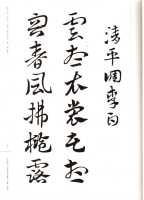 清平调李白
雲想衣裳花想
容春風拂檻露